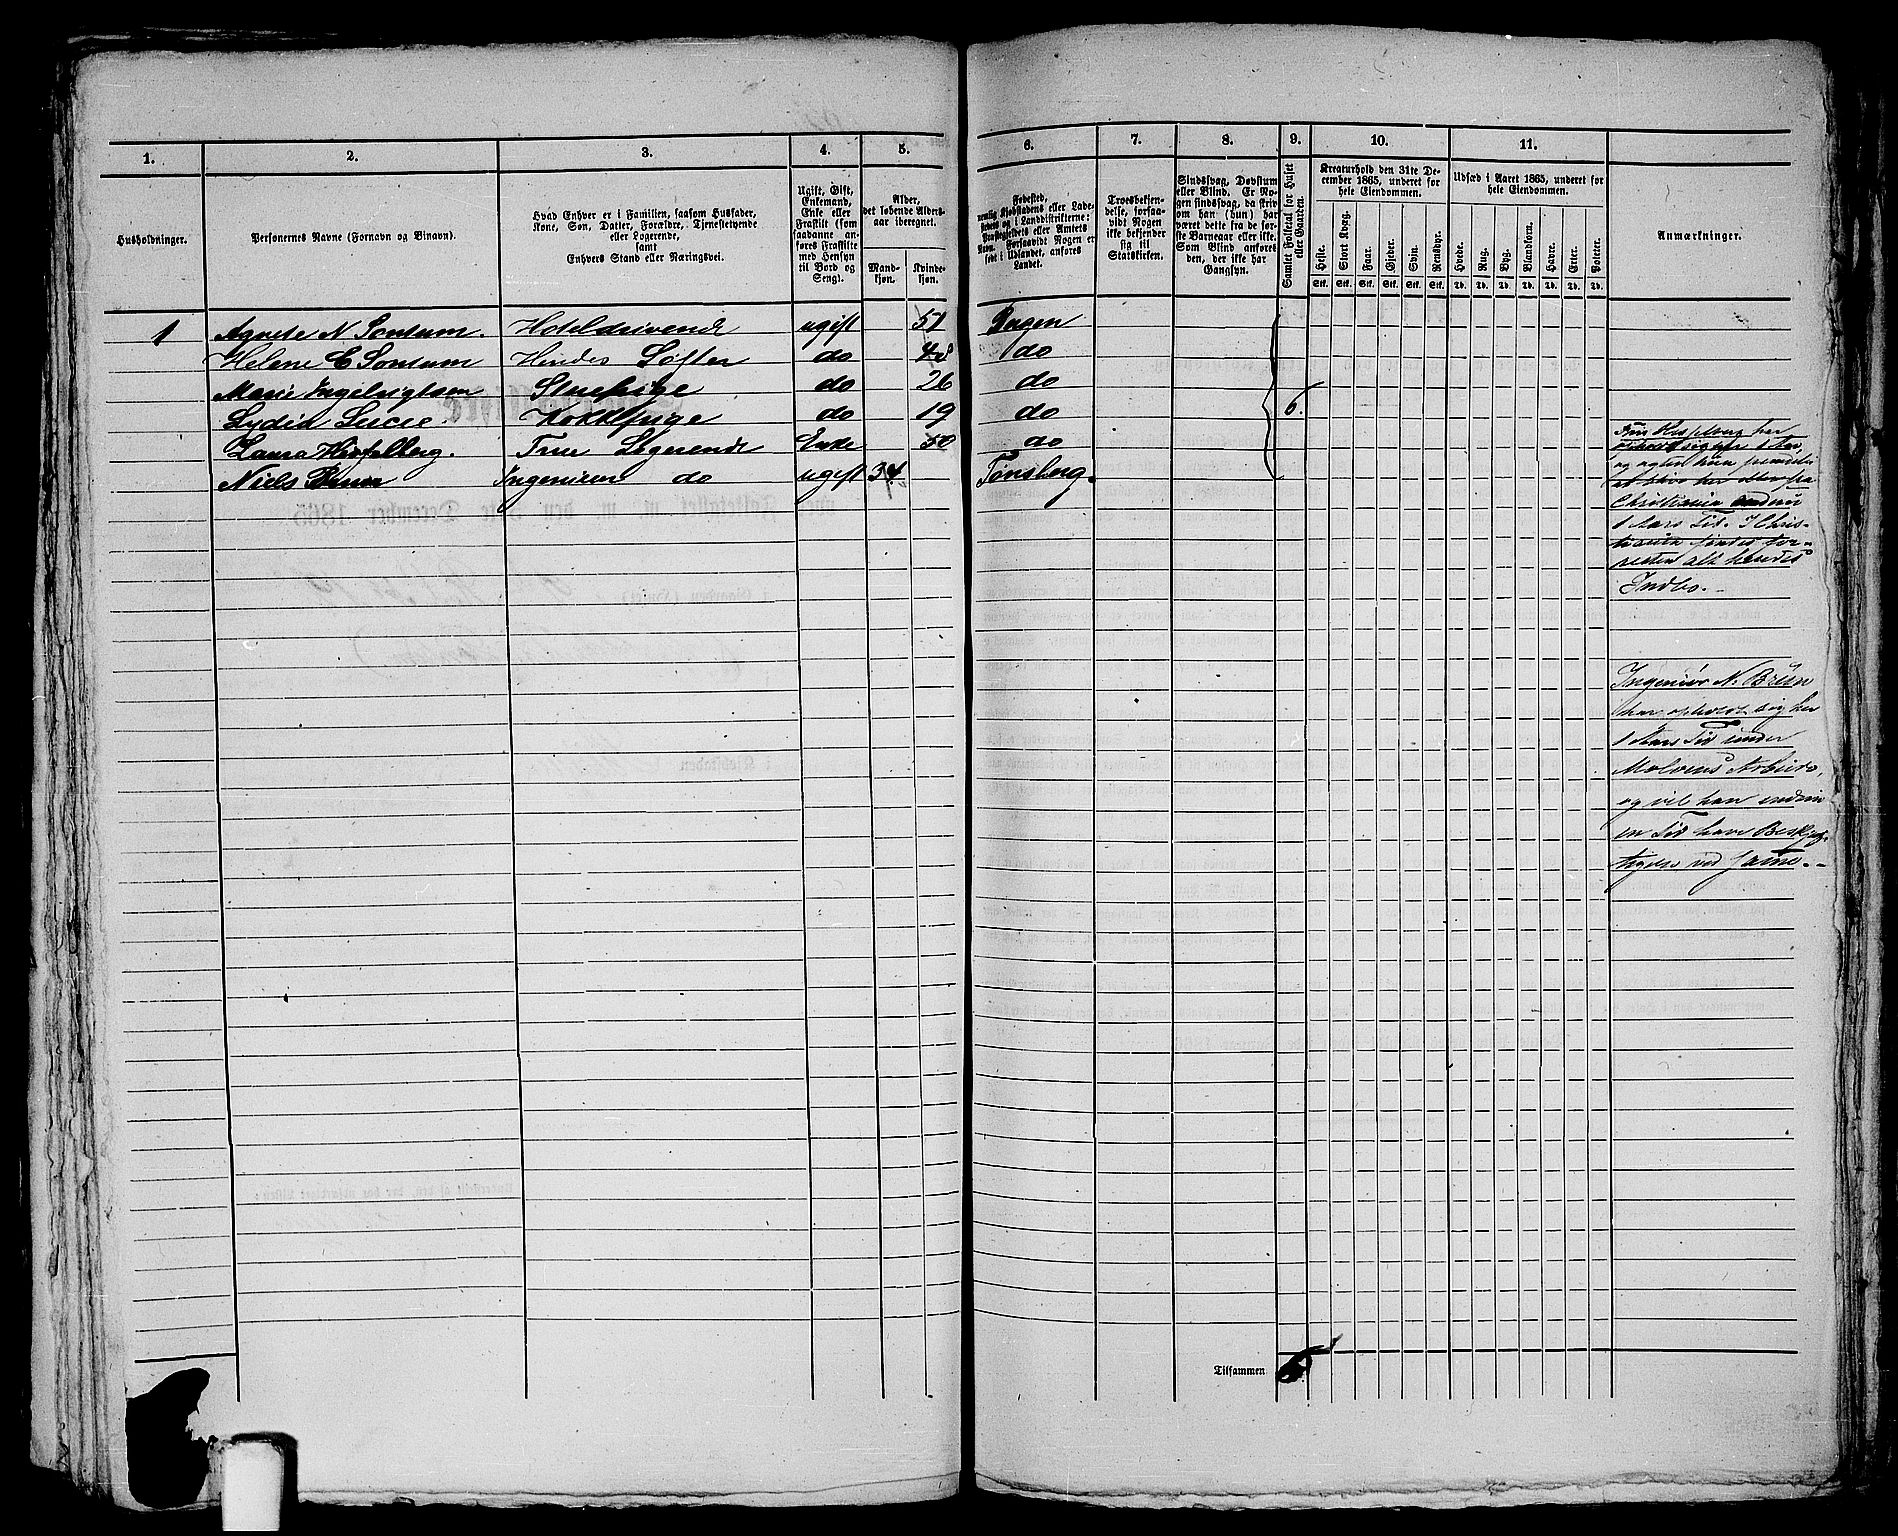 1.
2.
3.
4.
5.
6.
7.
8.
9.
10.
11.
Husholdninger.
Personernes Navne (Fornavn og Binavn).
Hvad Enhver er i Familien, saasom Husfader,
Kone, Søn, Datter, Forældre, Tjenestetyende
eller Logerende,
samt
Enhvers Stand eller Næringsvei.
Ugift, Gift,
Enkemand,
Enke eller
Fraskilt (som
saadanne an-
føres Fraskilte
med Hensyn
til Bord og
Seng).
Alder,
det løbende Alders-
aar iberegnet.
Mand-
kjøn.
Kvinde-
kjøn.
Fødested,
nemlig Kjøbstadens eller Lade-
stedets og i Landdistrikterne:
Præstegjeldets eller Amtets
Navn. Forsaavidt Nogen er
født i Udlandet, anføres
Landet.
Troesbekjen-
delse, forsaa-
vidt Nogen
ikke bekjender
sig til
Statskirken.
Sindssvag, Døvstum
eller Blind. Er No-
gen sindssvag, da skriv
om han (hun) har
været dette fra de før-
ste Barneaar eller ikke.
Som Blind anføres
den, der ikke har
Gangsyn.
Samlet Folketal for Huset
eller Gaarden.
Kreaturhold den 31te De-
cember 1865, underet for
hele Eiendommen.
Heste.
Stort Kvæg.
Faar.
Gjeder.
Svin.
Rensdyr.
Stk. Stk. Stk. Stk. Stk. Stk.
Udsæd i Aaret 1865, underet for
hele Eiendommen.
Hvede.
Rug.
Byg.
Blandkorn.
Havre.
Erter.
Poteter.
Td. Td. Td. Td. Td. Td. Td.
Anmærkninger.
1 Agnete N. Sontum. Hoteldrivende ugift 51 Bergen
Helene C Sontum Hendes Søster do 48 do
Marie Ingebrigtsen Stuepige do 26 do
Lydia Lucie. Kokkepige do 19 do 6.
Laura Hesselberg. Frue Logerende Enke 50 do
Niels Brun Ingeniør do ugift 34 Tønsberg.
Christiania endnu
1 Aars Tid. I Chris-
tiania findes for-
resten alt hendes
Indbo. -
Ingeniør N. Brun
har opholdt sig her
1 Aars Tid under
Moløens Arbeide,
og vil han endnu
en Tid have Beskjæf-
tigelse ved samme. -
Tilsammen 6.